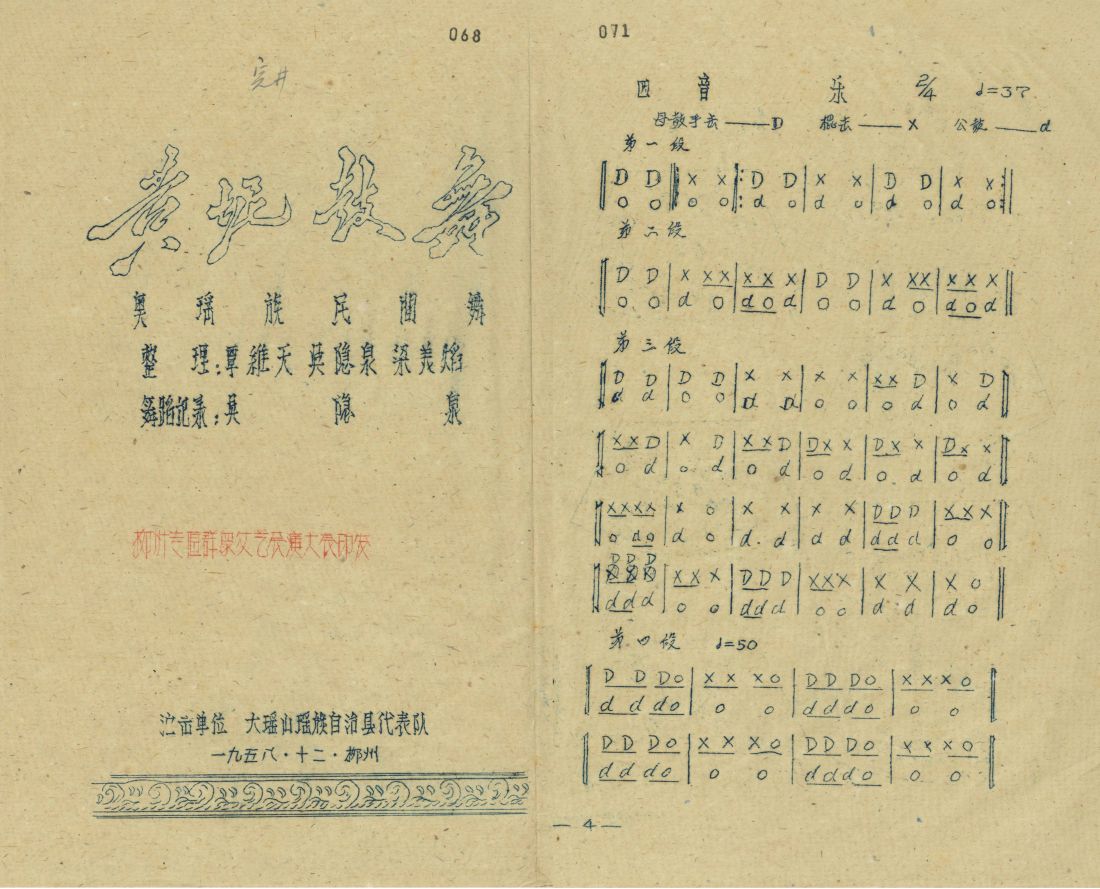 068
黄泥鼓舞
奥瑶族民间舞
整理:覃维天 莫隐泉 梁美焰
舞蹈记录:莫隐泉
柳州专区群众文艺会演大会印发
演出单位 大瑶山瑶族自治县代表队
一九五八·十二·柳州
071
四 音 乐 2/4 d=37
母鼓手击——D 棍击——X 公鼓——d
第一段
D D X X D D X X D D X X
O O O O d d d O d O d O
第二段
D D X XX XX X D D X XX XX X
O O d O dO d O O d O dO d
第三段
D D D D X X X X XX D X D
d d O O D D O O O d O d
XX D X D XX D DX X DX X DX X
O d O d O d O O O d O d
XXXX X O X X X X DD D XX X
O dO d O d d d d dd d O O
DD D
XX X XX X DD D XX X X X X O
dd d O O dd d O O d d d O
第四段 d=50
D D DO XX XO DD DO XX XO
d d dO O O dd dO O O
DD DO XX XO DD DO XX XO
dd dO O O dd dO O O
— 4 —